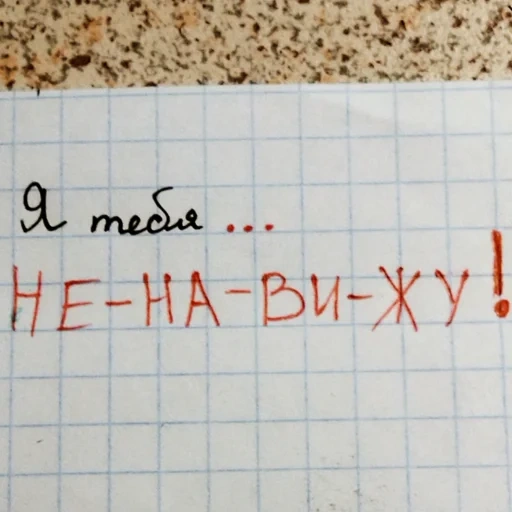 Я тебя ...
НЕ-НА-ВИ-ЖУ!